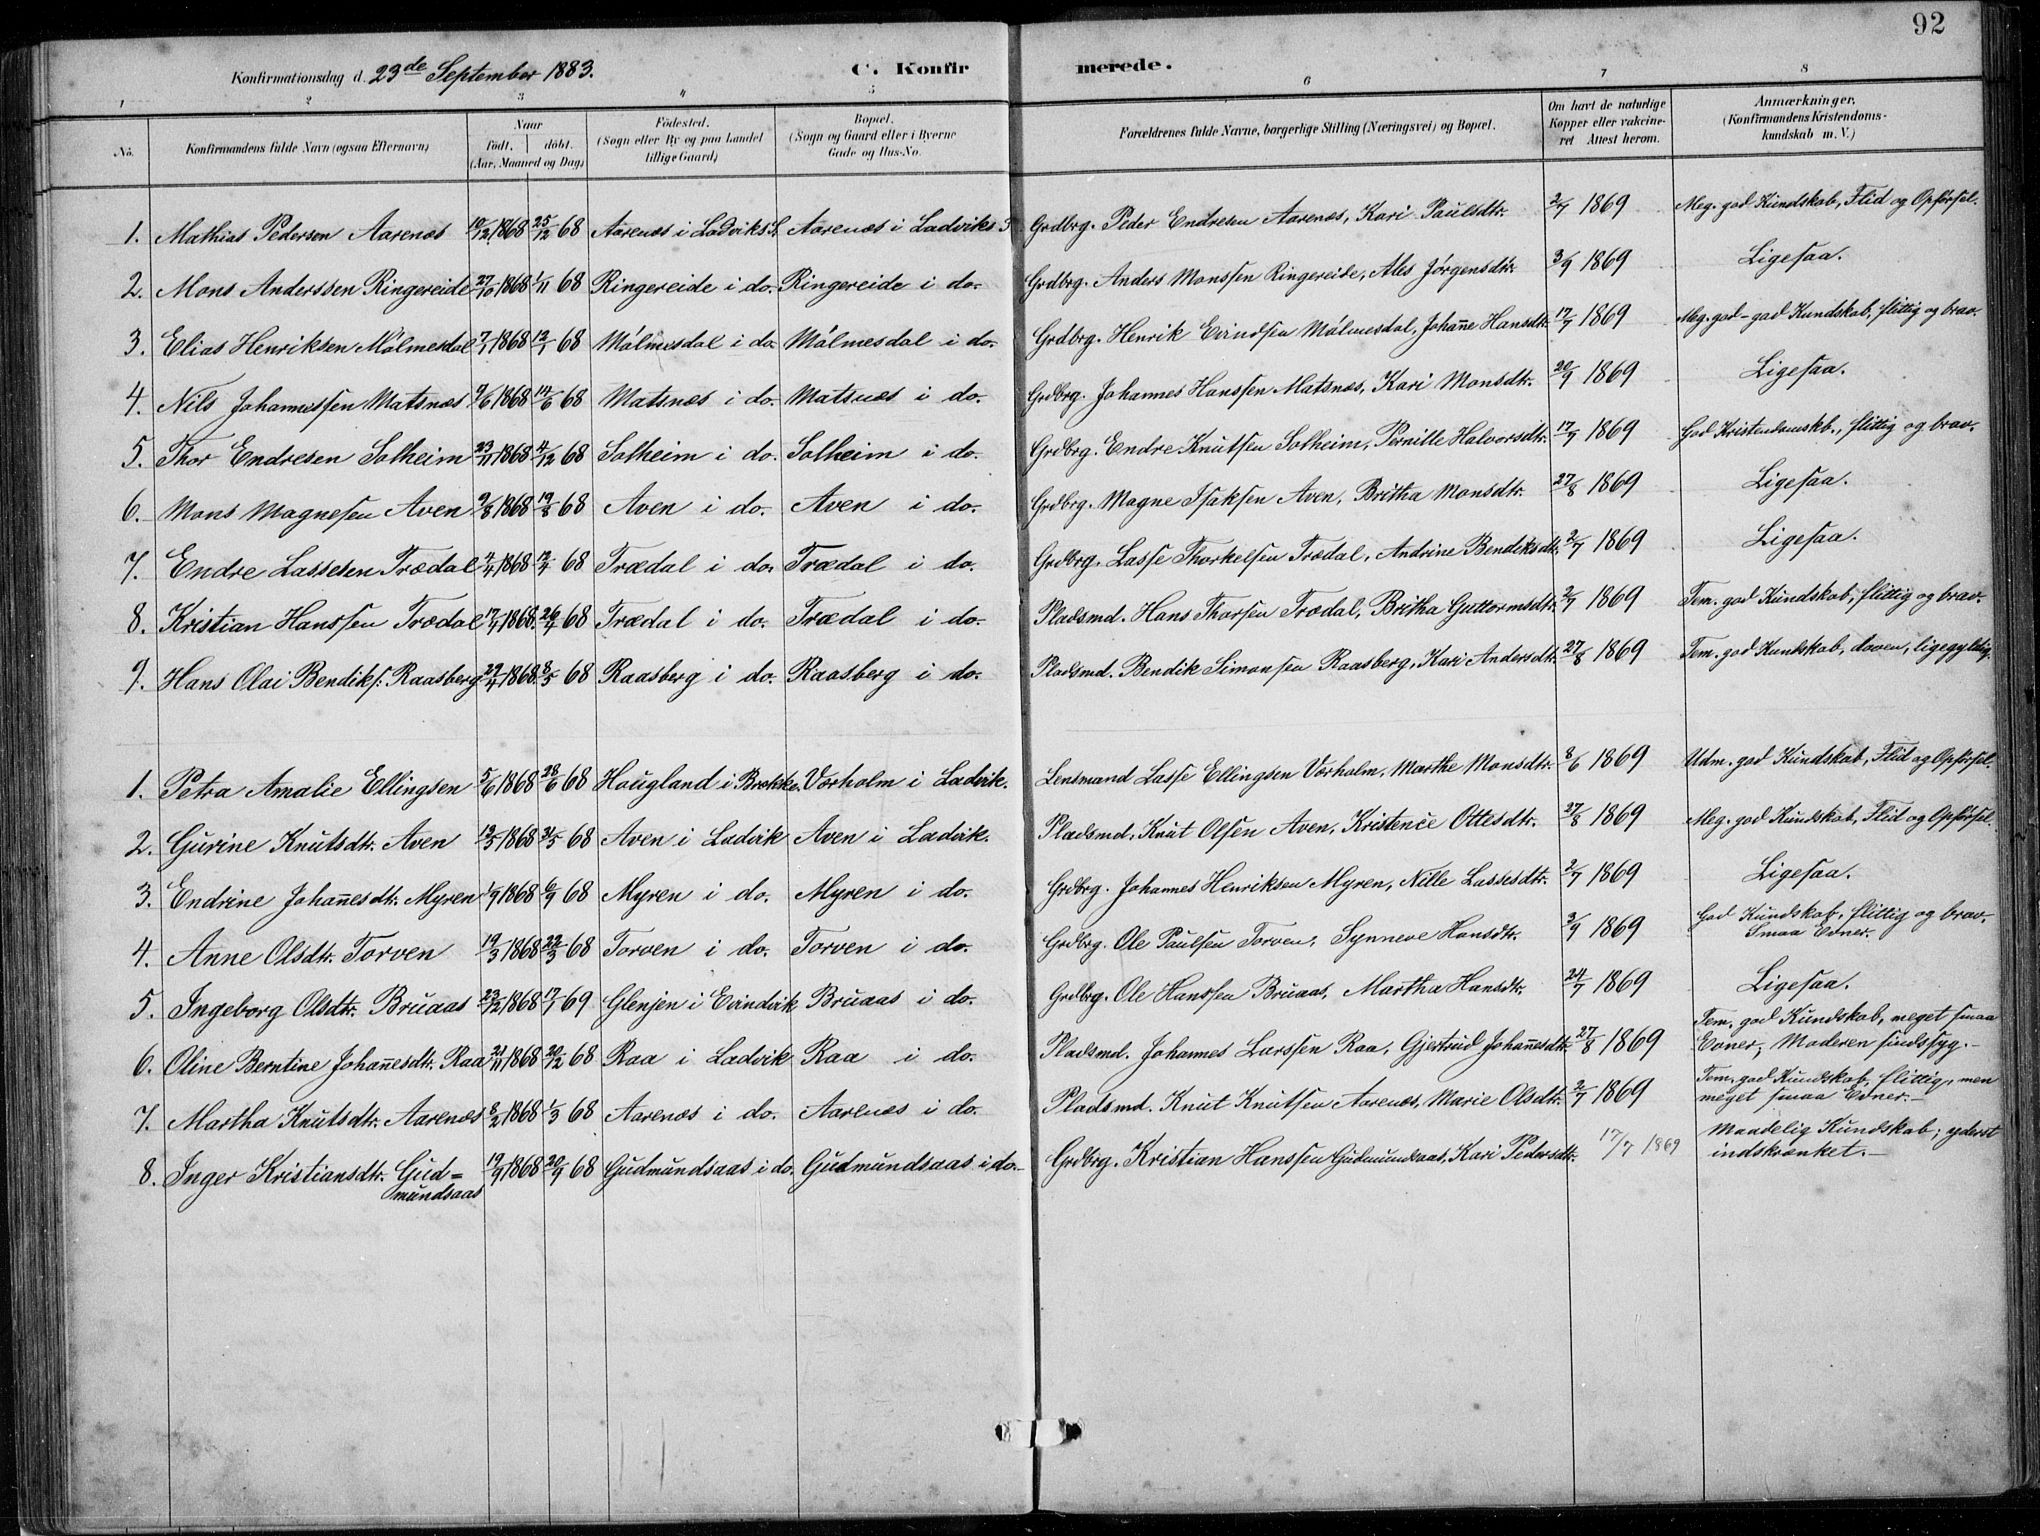 92
Konfirmationsdag d. 23de September 1883. C. Konfirmerede.
1 2 3 4 5 6 7 8
No. Konfirmandens fulde Navn (ogsaa Efternavn) Naar født. døbt. (Aar, Maaned og Dag) Fødested. (Sogn eller By og paa Landet tillige Gaard) Bopæl. (Sogn og Gaard eller i Byerne Gade og Hus-No. Forældrenes fulde Navne, borgerlige Stilling (Næringsvei) og Bopæl. Om havt de naturlige Kopper eller vakcineret Attest herom. Anmærkninger, (Konfirmandens Kristendomskundskab m. V.)
1. Mathias Pedersen Aarenæs 10/12 1868 25/12 68 Aarenæs i Ladviks S. Aarenæs i Ladviks S Grdbrg. Peder Endresen Aarenæs, Kari Paulsdtr. 2/7 1869 Meg. god Kundskab, Flid og Opførsel.
2. Mons Anderssen Ringereide 27/10 1868 1/11 68 Ringereide i do. Ringereide i do. Grdbrg. Anders Monssen Ringereide, Ales Jørgensdtr. 3/9 1869 Ligesaa.
3. Elias Henriksen Mølmesdal 7/1 1868 12/1 68 Mølmesdal i do. Mølmesdal i do. Grdbrg. Henrik Evindsen Mølmesdal, Johan̄e Hansdtr. 17/7 1869 Meg. god - god Kundskab, flittig og brav.
4. Nils Johannessen Matsnæs 9/6 1868 14/6 68 Matsnæs i do. Matsnæs i do. Grdbrg. Johannes Hanssen Matsnæs, Kari Monsdtr. 20/9 1869 Ligesaa.
5. Thor Endresen Solheim 23/11 1868 4/12 68 Solheim i do. Solheim i do. Grdbrg. Endre Knutsen Solheim, Pernille Halvorsdtr. 17/7 1869 God Kristendomskb., flittig og brav.
6. Mons Magnesen Aven 9/8 1868 19/8 68 Aven i do. Aven i do. Grdbrg. Magne Isaksen Aven, Britha Monsdtr. 27/8 1869 Ligesaa.
7. Endre Lassesen Trædal 4/4 1868 12/4 68 Trædal i do. Trædal i do. Grdbrg. Lasse Thorkelsen Trædal, Andrine Bendiksdtr. 2/7 1869 Ligesaa.
8. Kristian Hanssen Trædal 17/4 1868. 26/4 68 Trædal i do. Trædal i do. Pladsmd. Hans Thorsen Trædal, Britha Guttormsdtr. 2/7 1869 Tem. god Kundskab, flittig og brav.
9. Hans Olai Bendiks. Raasberg 29/4 1868. 8/5 68 Raasberg i do. Raasberg i do. Pladsmd. Bendik Simonsen Raasberg, Kari Andersdtr. 27/8 1869 Tem. god Kundskab, doven, ligegyldig.
1. Petra Amalie Ellingsen 5/6 1868 28/6 68 Hougland i Brekke. Værholm i Ladvik. Lensmand Lasse Ellingsen Værholm, Marthe Monsdtr. 8/6 1869 Udm. god Kundskab, Flid og Opførsel.
2. Gurine Knutsdtr. Aven 12/5 1868 21/5 68 Aven i Ladvik Aven i Ladvik. Pladsmd. Knut Olsen Aven, Kristence Ottesdtr. 27/8 1869 Meg. god Kundskab, Flid og Opførsel.
3. Endrine Johan̄esdtr. Myren 1/9 1868 6/9 68 Myren i do. Myren i do. Grdbrg. Johannes Henriksen Myren, Nille Lassesdtr. 2/7 1869 Ligesaa.
4. Anne Olsdtr. Torven 19/3 1868 22/3 68 Torven i do. Torven i do. Grdbrg. Ole Paulsen Torven, Synneve Hansdtr. 3/9 1869 God Kundskab, flittig og brav. Smaa Evner.
5. Ingeborg Olsdtr. Bruaas 23/12 1868 17/1 69 Glenjen i Evindvik Bruaas i do. Grdbrg. Ole Hanssen Bruaas, Martha Hansdtr. 24/7 1869 Ligesaa.
6. Oline Berntine Johan̄esdtr. Raa 21/11 1868 20/12 68 Raa i Ladvik Raa i do. Pladsmd. Johannes Larssen Raa, Gjertrud Johan̄esdtr. 27/8 1869 Tem. god Kundskab, meget smaa Evner; Moderen sindssyg.
7. Martha Knutsdtr. Aarenæs 8/2 1868 1/3 68 Aarenæs i do. Aarenæs i do. Pladsmd. Knut Knutsen Aarenæs, Marie Olsdtr. 2/7 1869 Tem. god Kundskab, flittig, men meget smaa Evner.
8. Inger Kristiansdtr. Gud= mundsaas 19/9 1868 20/9 68 Gudmundsaas i do. Gudmundsaas i do. Grdbrg. Kristian Hanssen Gudmundsaas, Kari Pedersdtr. 17/7 1869 Maadelig Kundskab; yderst indskrænket.